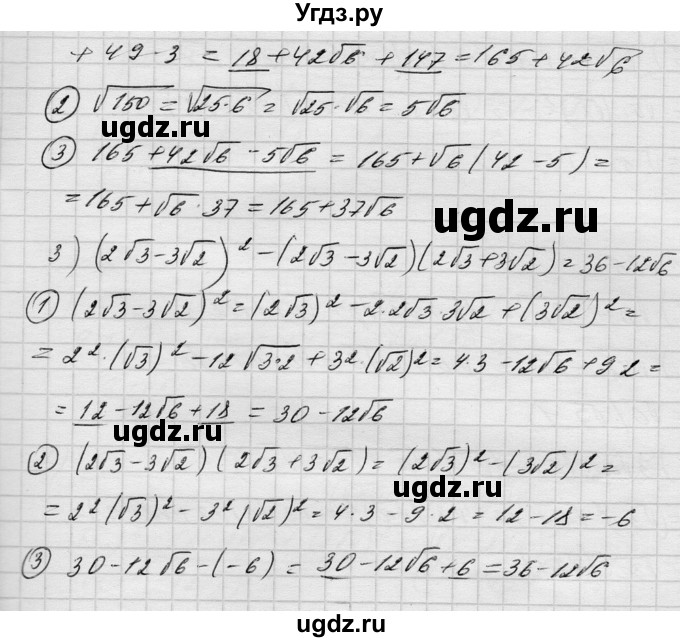 Угдз.ру
+ 49·3 = 18 + 42√6 + 147 = 165 + 42√6
② √150 = √25·6 = √25·√6 = 5√6
ugdz.ru
ugdz.ru
③ 165 + 42√6 − 5√6 = 165 + √6 (42 − 5) =
= 165 + √6 · 37 = 165 + 37√6
ugdz.ru
3) (2√3 − 3√2)² − (2√3 − 3√2)(2√3 + 3√2) = 36 − 12√6
① (2√3 − 3√2)² = (2√3)² − 2·2√3·3√2 + (3√2)² =
= 2²·(√3)² − 12√3·2 + 3²·(√2)² = 4·3 − 12√6 + 9·2 =
= 12 − 12√6 + 18 = 30 − 12√6
ugdz.ru
② (2√3 − 3√2)(2√3 + 3√2) = (2√3)² − (3√2)² =
ugdz.ru
= 2²(√3)² − 3²(√2)² = 4·3 − 9·2 = 12 − 18 = −6
③ 30 − 12√6 − (−6) = 30 − 12√6 + 6 = 36 − 12√6
ugdz.ru
ugdz.ru